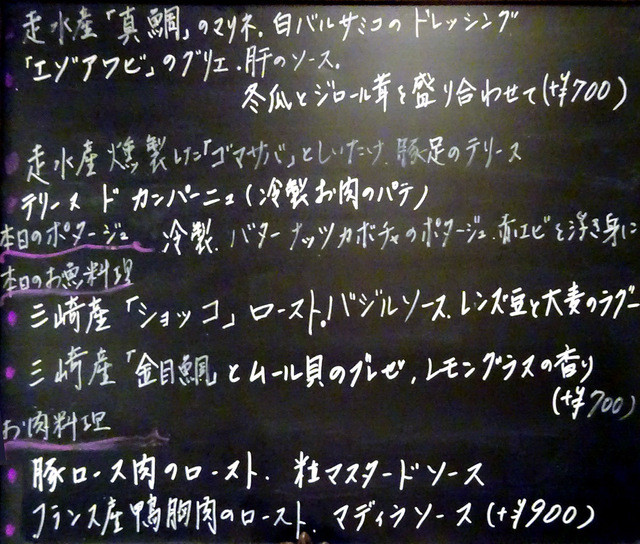 走水産「真鯛」のマリネ.白バルサミコのドレッシング
「エゾアワビ」のグリエ.肝のソース.
冬瓜とジロール茸を盛り合わせて(+¥700)
走水産 燻製した「ゴマサバ」としいたけ.豚足のテリーヌ
テリーヌ ド カンパーニュ(冷製お肉のパテ)
本日のポタージュ 冷製.バターナッツカボチャのポタージュ.赤エビを浮き身に
本日のお魚料理
三崎産「ショッコ」ロースト.バジルソース.レンズ豆と大麦のラグー
三崎産「金目鯛」とムール貝のブレゼ,レモングラスの香り
(+¥700)
お肉料理
豚ロース肉のロースト. 粒マスタードソース
フランス産鴨胸肉のロースト.マディラソース(+¥900)